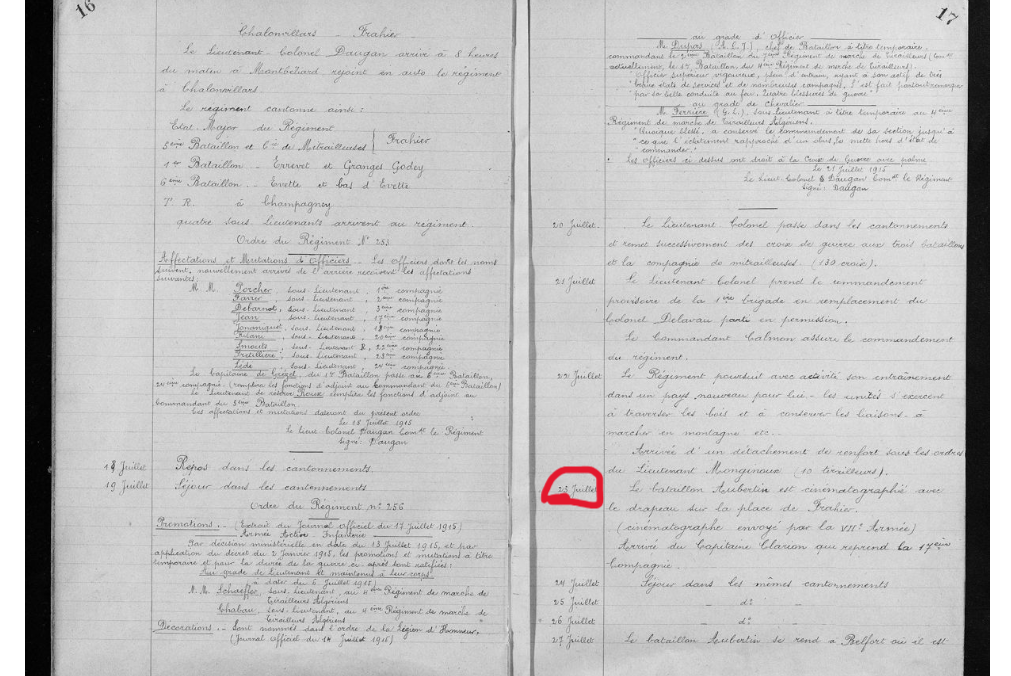 16
Chalonvillars - Frahier
Le Lieutenant-Colonel Daugan arrivé à 8 heures
du matin à Montbéliard rejoint en auto le régiment
à Chalonvillars
Le régiment cantonne ainsi:
Etat. Major du Régiment
5ème Bataillon et Cie de Mitrailleuses | Frahier
1er Bataillon - Errevet et Granges Godey
6ème Bataillon - Evette et bas d'Evette
T. R. à Champagney
quatre sous-lieutenants arrivent au régiment.
Ordre du Régiment N° 253
Affectations et Mutations d'Officiers - Les Officiers dont les noms
suivent, nouvellement arrivés de l'arrière reçoivent les affectations
suivantes:
M. M. Porcher, sous-lieutenant, 1ère compagnie
sous-lieutenant, 2ème compagnie
Debarnot, sous-lieutenant, 3ème compagnie
Jean, sous-lieutenant, 17ème compagnie
sous-lieutenant, 18ème compagnie
sous-lieutenant, 20ème compagnie
sous-lieutenant, 22ème compagnie
sous-lieutenant, 23ème compagnie
sous-lieutenant, 24ème compagnie
Le Capitaine de du 1er Bataillon passe au 6ème Bataillon,
24ème compagnie. (remplira les fonctions d'adjoint au Commandant du Bataillon)
Le Lieutenant de réserve Roux remplira les fonctions d'adjoint au
Commandant du 5ème Bataillon
Ces affectations et mutations dateront du présent ordre
le 18 Juillet 1915
Le lieut-Colonel Daugan Comdt le Régiment
signé: Daugan
18 Juillet Repos dans les cantonnements.
19 Juillet Séjour dans les cantonnements
Ordre du Régiment n° 256
Promotions.- (Extrait du Journal Officiel du 17 Juillet 1915)
Armée Active - Infanterie
Par décision ministérielle en date du 13 Juillet 1915, et par
application du décret du 2 Janvier 1915, les promotions et mutations à titre
temporaire et pour la durée de la guerre ci-après sont ratifiées:
Au grade de Lieutenant et maintenus à leur corps.
à dater du 5 Juillet 1915
M. M. Schaeffer, sous-lieutenant, au 4ème Régiment de marche de
Tirailleurs Algériens
Chabau, sous-lieutenant, au 4ème Régiment de marche de
Tirailleurs Algériens
Décorations.- Sont nommés dans l'ordre de la Légion d'Honneur,
(Journal Officiel du 14 Juillet 1915)
17
au grade d'Officier
M. Dupas (A. L. J.), chef de Bataillon à titre temporaire,
commandant le 2ème Bataillon du 7ème Régiment de marche de Tirailleurs (Comdt
actuellement, le 1er Bataillon du 4ème Régiment de marche de tirailleurs).
"Officier supérieur vigoureux, plein d'entrain, ayant à son actif de très
"beaux états de services et de nombreuses campagnes, s'est fait remarquer
"par sa belle conduite au feu. Quatre blessures de guerre."
au grade de Chevalier
M. Ferrière (G. L.), sous-lieutenant à titre temporaire au 4ème
Régiment de marche de Tirailleurs Algériens.
"Quoique blessé, a conservé le commandement de sa section jusqu'à
"ce que l'éclatement rapproché d'un obus le mette hors d'état de
"commander."
Les officiers ci dessus ont droit à la Croix de Guerre avec palme.
Le 21 Juillet 1915
Le Lieut-Colonel Daugan Comdt le Régiment
signé: Daugan
20 Juillet. Le Lieutenant Colonel passe dans les cantonnements
et remet successivement des croix de guerre aux trois bataillons
et la compagnie de mitrailleuses. (130 croix).
21 Juillet Le lieutenant Colonel prend le commandement
provisoire de la 1ère brigade en remplacement du
Colonel Delavau parti en permission.
Le Commandant Calmon assure le commandement
du régiment.
22 Juillet Le Régiment poursuit avec activité son entraînement
dans un pays nouveau pour lui. - les unités s'exercent
à traverser les bois et à conserver les liaisons, à
marcher en montagne etc.
Arrivée d'un détachement de renfort sous les ordres
du Lieutenant Monginoux (10 tirailleurs).
23 Juillet Le bataillon Aubertin est cinématographié avec
le drapeau sur la place de Frahier.
(cinématographe envoyé par la VIIe Armée)
Arrivée du Capitaine Clarion qui reprend la 17ème
Compagnie.
24 Juillet Séjour dans les mêmes cantonnements
25 Juillet - do -
26 Juillet - do -
27 Juillet Le bataillon Aubertin se rend à Belfort où il est